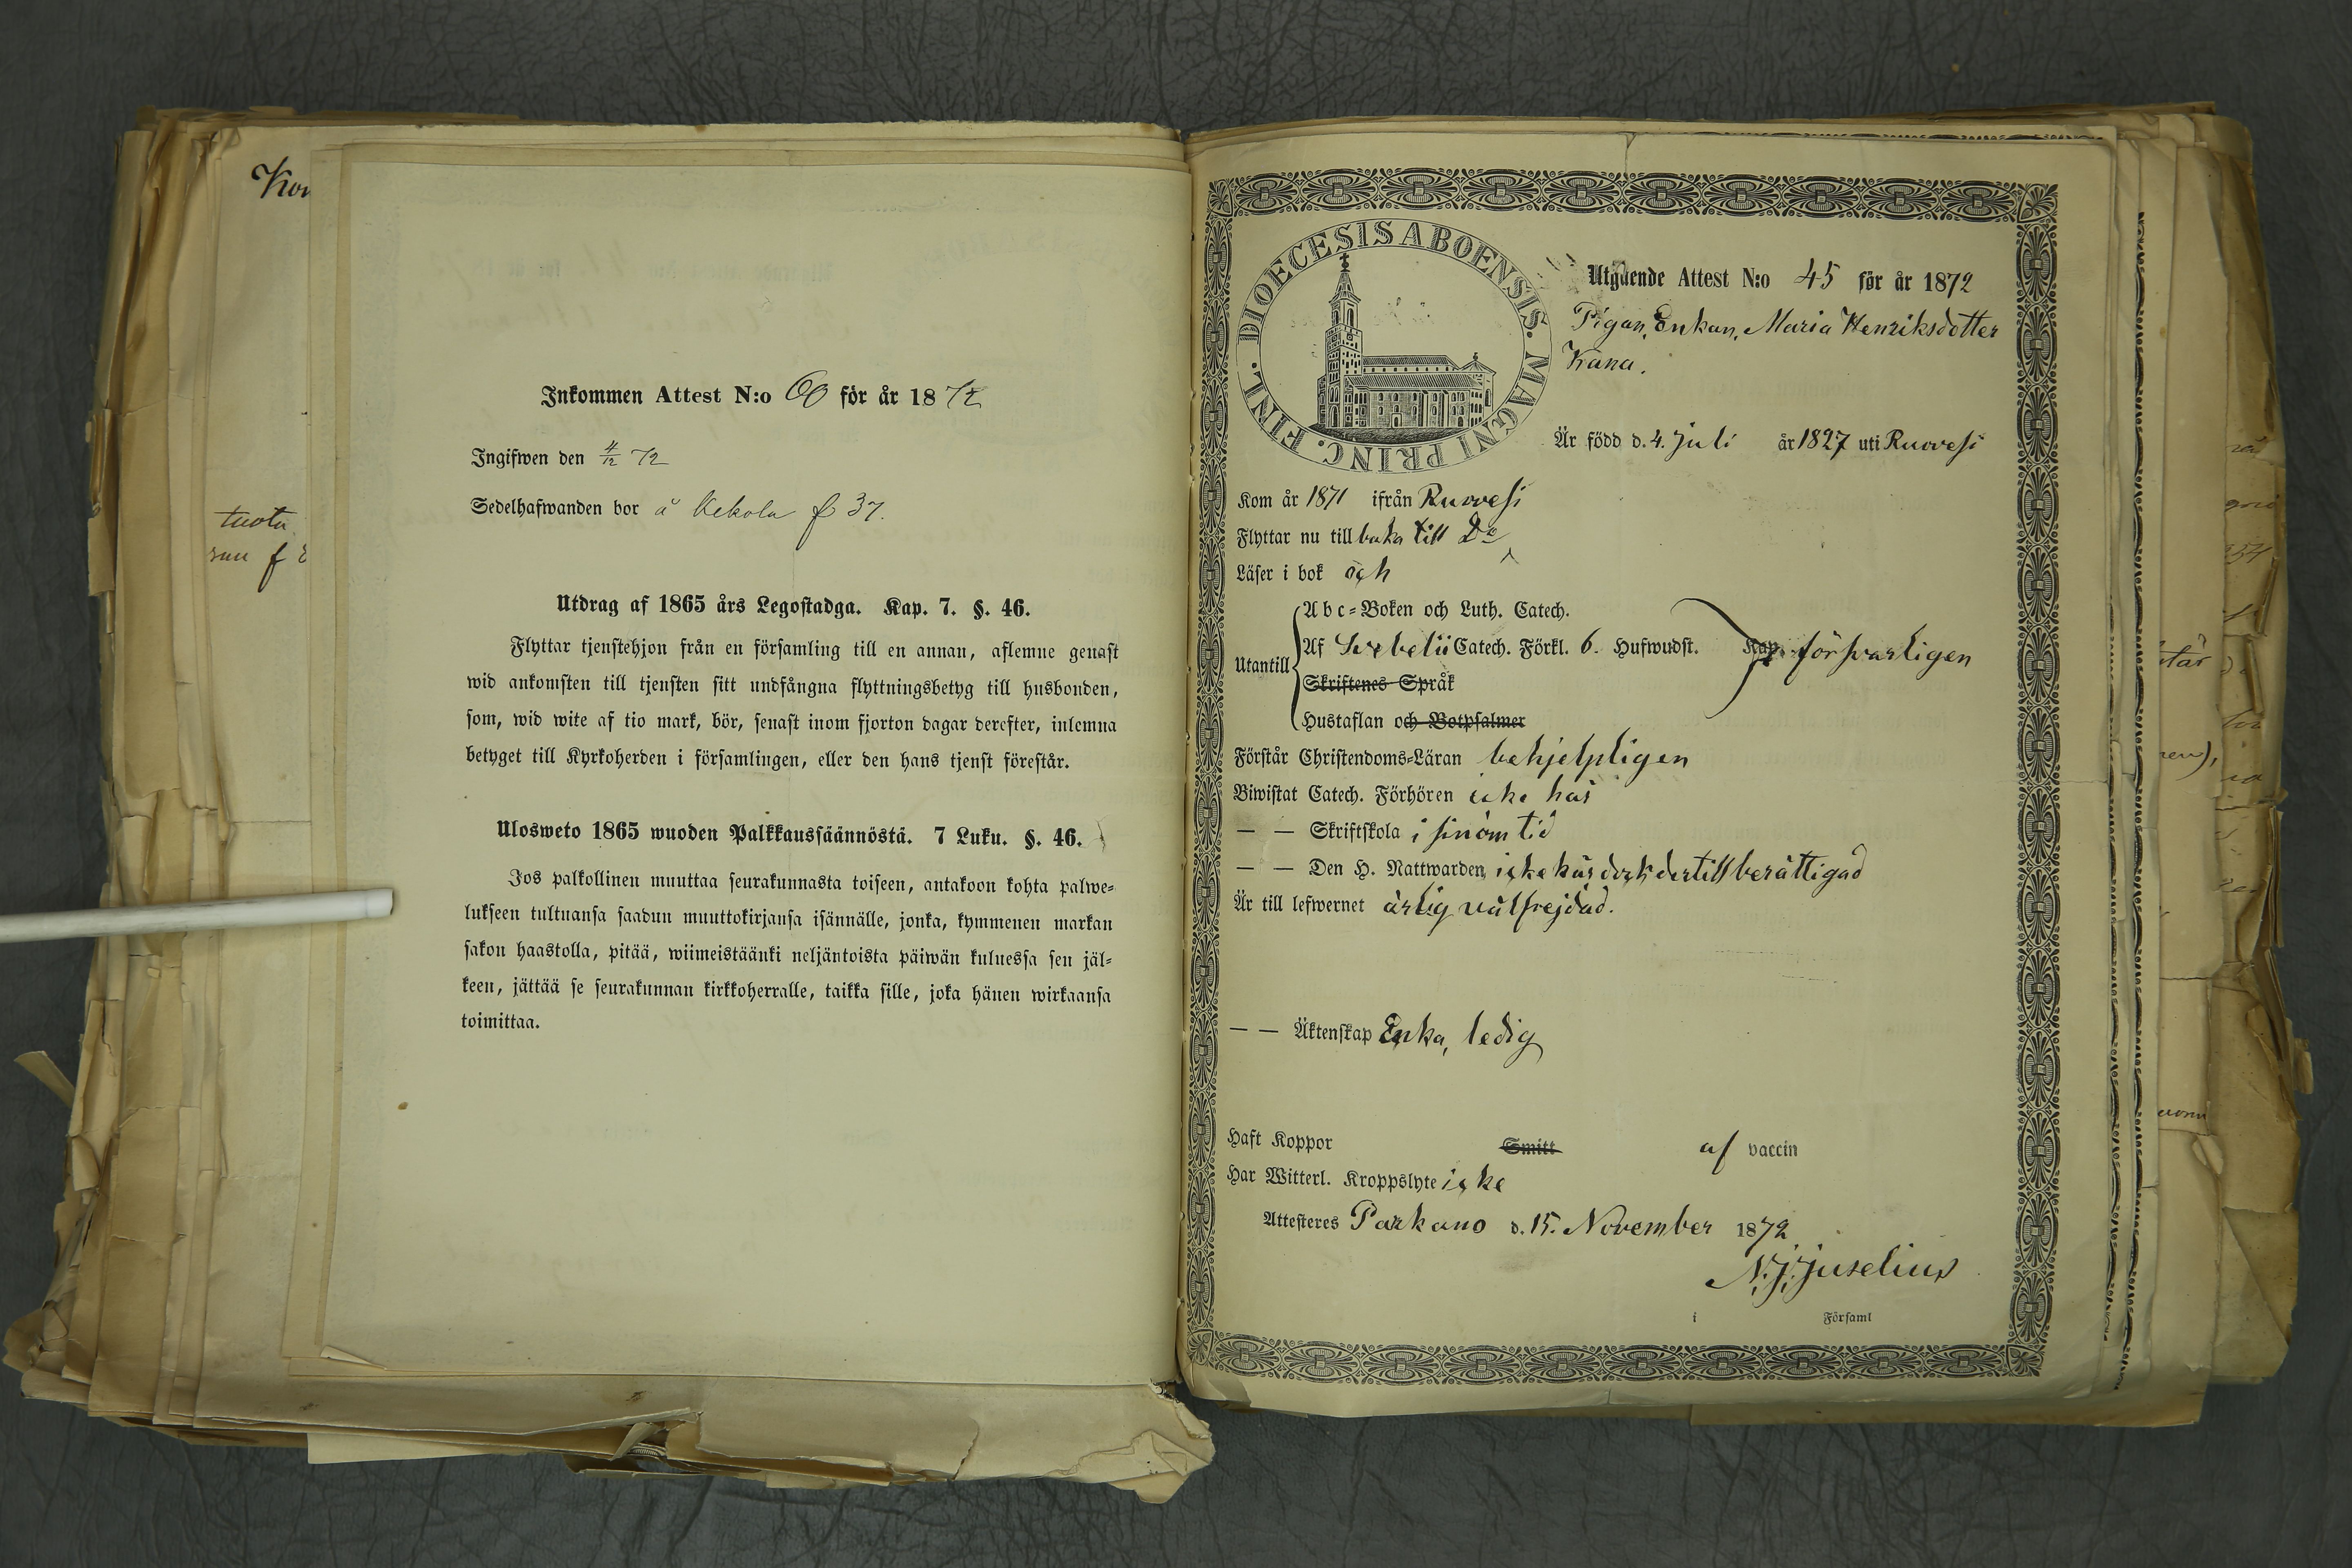 Kon
tuota
f
Inkommen Attest N:o 60 för år 1872
Ingifwen den 4/12 72
Sedelhafwanden bor å Kekola f 37.
Utdrag af 1865 års Legostadga. Kap. 7. §. 46.
Flyttar tjenstehjon från en församling till en annan, aflemne genast
wid ankomsten till tjensten sitt undfångna flyttningsbetyg till husbonden,
som, wid wite af tio mark, bör, senast inom fjorton dagar derefter, inlemna
betyget till Kyrkoherden i församlingen, eller den hans tjenst förestår.
Ulosweto 1865 wuoden Palkkaussäännöstä. 7 Luku. §. 46.
Jos palkollinen muuttaa seurakunnasta toiseen, antakoon kohta palwe-
lukseen tultuansa saadun muuttokirjansa isännälle, jonka, kymmenen markan
sakon haastolla, pitää, wiimeistäänki neljäntoista päiwän kuluessa sen jäl-
keen, jättää se seurakunnan kirkkoherralle, taikka sille, joka hänen wirkaansa
toimittaa.
DIOECESIS ABOENSIS. MAGNI PRINC. FINL.
Utgående Attest N:o 45 för år 1872
Pigan, Enkan, Maria Henriksdotter
Kana.
Är född d. 4. Juli år 1827 uti Ruovesi
Kom år 1871 ifrån Ruovesi
Flyttar nu till baka till Do
Läser i bok och
Utantill
Abc-Boken och Luth. Catech.
Af Svebelii Catech. Förkl. 6. Hufwudst. Kap. försvarligen
Skriftenes Språk
Hustaflan och Botpsalmer
Förstår Christendoms-Läran behjelpligen
Biwistat Catech. Förhören icke här
— — Skriftskola i sinom tid
— — Den H. Nattwarden icke här dock dertill berättigad
Är till lefwernet ärlig välfrejdad.
— — Äktenskap Enka, ledig
Haft Koppor Smitt af vaccin
Har Witterl. Kroppslyte icke
Attesteres Parkano d. 15. November 1872
N. J. Juselius
i Församl